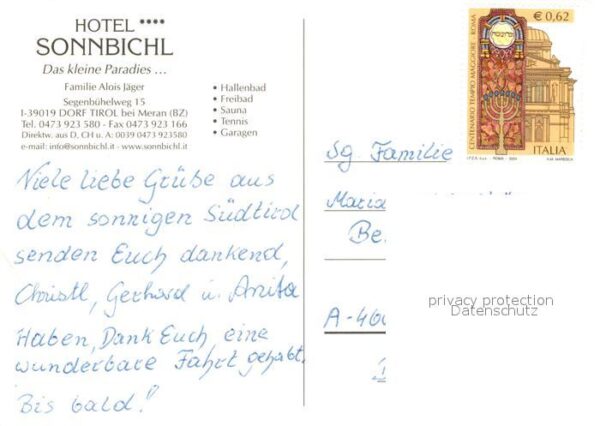 HOTEL ****
SONNBICHL
Das kleine Paradies ...
Familie Alois Jäger
Segenbühelweg 15
I-39019 DORF TIROL bei Meran (BZ)
Tel. 0473 923 580 - Fax 0473 923 166
Direktw. aus D, CH u. A: 0039 0473 923580
e-mail: info@sonnbichl.it - www.sonnbichl.it
• Hallenbad
• Freibad
• Sauna
• Tennis
• Garagen
Viele liebe Grüße aus
dem sonnigen Südtirol
senden Euch dankend,
Christl, Gerhard u. Anita
Haben, Dank Euch, eine
wunderbare Fahrt gehabt.
Bis bald!
€ 0,62
CENTENARIO TEMPIO MAGGIORE - ROMA
ITALIA
Sg Familie
Maria
Be.
A-460
privacy protection
Datenschutz